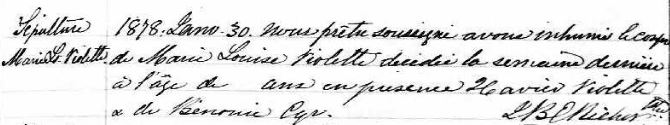 Sépulture 1878. Janv. 30. nous prêtre soussigné avons inhumé le corps
Marie Ls. Violette de Marie Louise Violette décédée la semaine dernière
à l'âge de ans en présence Xavier Violette
& de Bénonie Cyr.